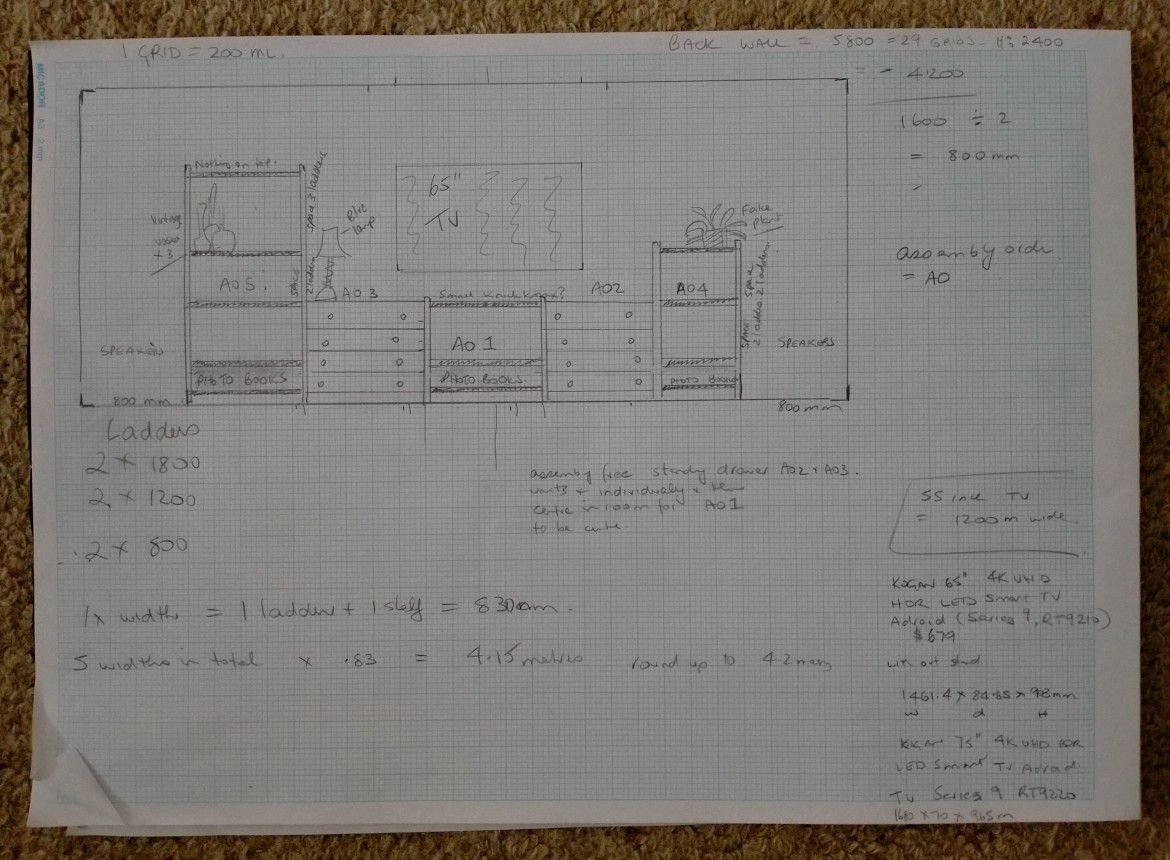 1 GRID = 200 ML.
BACK WALL = 5800 = 29 GRIDS. H: 2400
= - 4200
1600 ÷ 2
= 800 mm
=
assembly orde
= AO
MICADOR A3 2 mm
Nothing on top.
Spare 3 ladders
Vintage
vases
x 3
A05.
Space
2 ladders
Blue
lamp
A03
65"
TV
Small knick knax?
A02
A01
Fake
plant
A04
Space 2 ladders
Space
2 ladders
SPEAKERS
SPEAKERS
PHOTO BOOKS
PHOTO BOOKS
PHOTO BOOKS
800 mm
800 mm
Ladders
2 x 1800
2 x 1200
2 x 800
assembly free standy drawer A02 + A03.
units + individualy + then
centre in room for A01
to be cente
55 inch TV
= 1200m wide.
1x width = 1 ladder + 1 shelf = 830mm.
5 widths in total x .83 = 4.15 metres round up to 4.2
KOGAN 65" 4K UHD
HDR LED Smart TV
Adroid (Series 9, RT9210)
$679
with out stand.
1461.4 x 84.85 x 
W d H
KOGAN 75" 4K UHD HDR
LED Smart TV Adroid
TV Series 9 RT9220
1680 x 70 x 965m